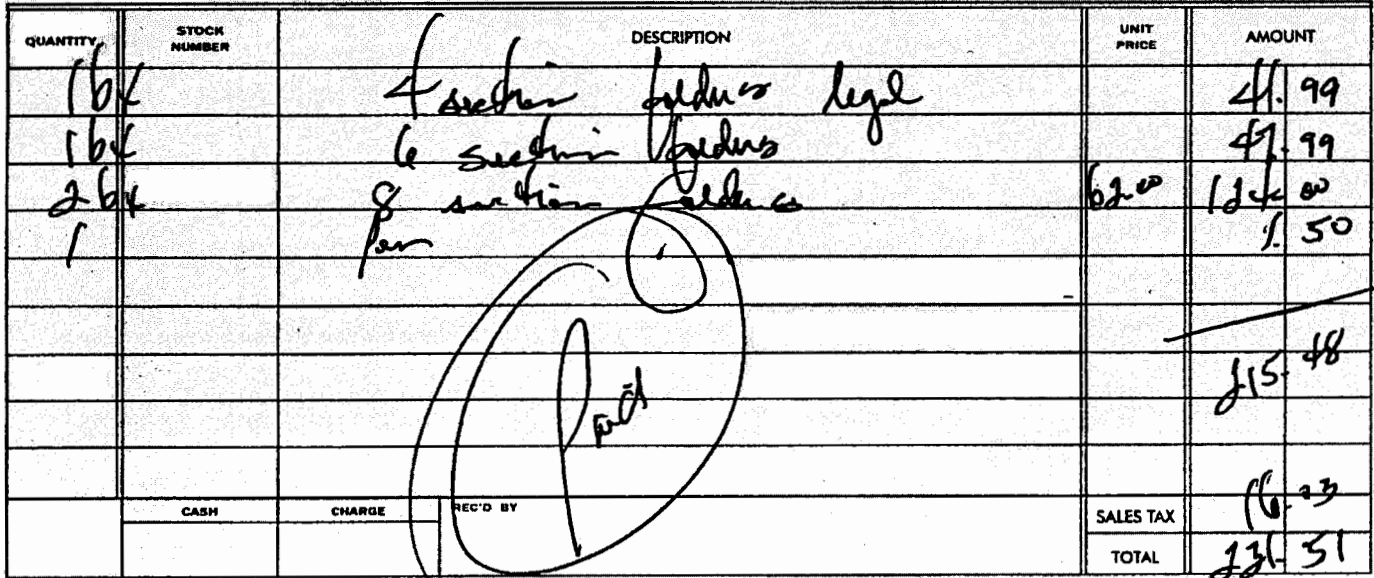 QUANTITY STOCK NUMBER DESCRIPTION UNIT PRICE AMOUNT
1 bx 4 section folders legal 41.99
1 bx 6 section folders 47.99
2 bx 8 section folders 62.00 124.00
1 Pen 1.50
215.48
Paid
CASH CHARGE REC'D BY SALES TAX 16.03
TOTAL 231.51